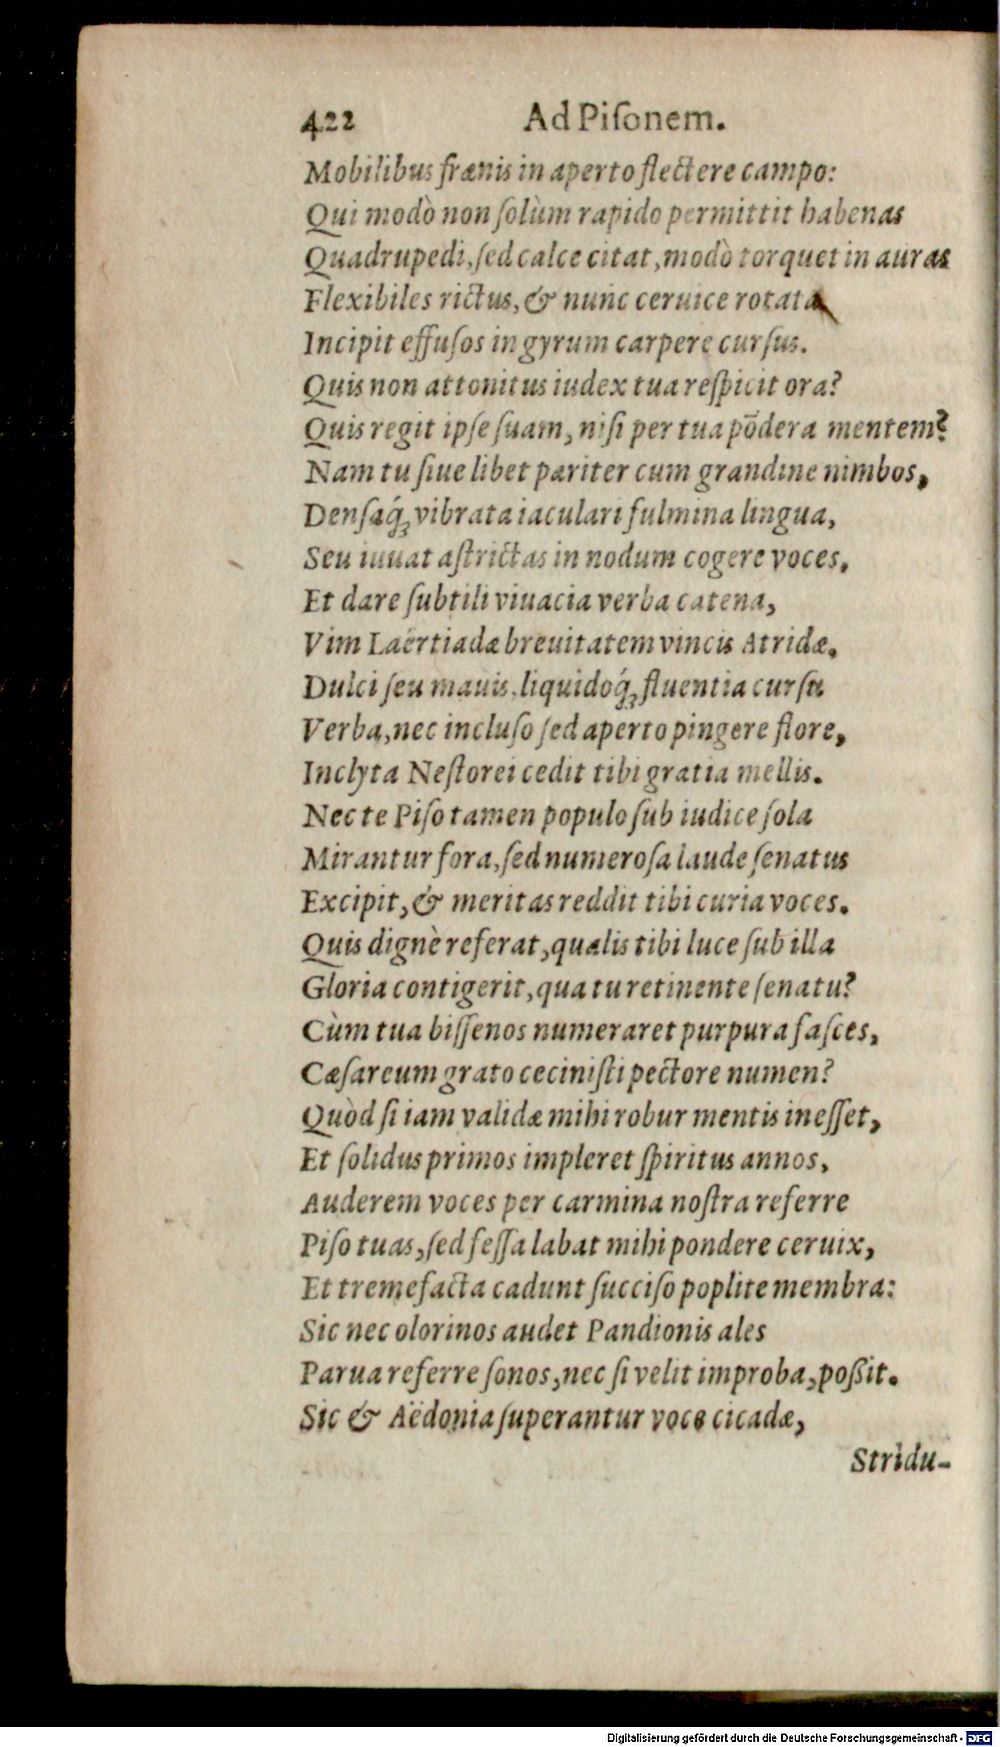 422 Ad Piſonem.
Mobilibus frænis in aperto flectere campo:
Qui modò non ſolùm rapido permittit habenas
Quadrupedi, ſed calce citat, modò torquet in auras
Flexibiles rictus, & nunc ceruice rotata
Incipit effuſos in gyrum carpere curſus.
Quis non attonitus iudex tua reſpicit ora?
Quis regit ipſe ſuam, niſi per tua põdera mentem?
Nam tu ſiue libet pariter cum grandine nimbos,
Denſaq́ꝫ vibrata iaculari fulmina lingua,
Seu iuuat aſtrictas in nodum cogere voces,
Et dare ſubtili viuacia verba catena,
Vim Laërtiadæ breuitatem vincis Atridæ.
Dulci ſeu mauis, liquidoq́ꝫ fluentia curſu
Verba, nec incluſo ſed aperto pingere flore,
Inclyta Neſtorei cedit tibi gratia mellis.
Nec te Piſo tamen populo ſub iudice ſola
Mirantur fora, ſed numeroſa laude ſenatus
Excipit, & meritas reddit tibi curia voces.
Quis dignè referat, qualis tibi luce ſub illa
Gloria contigerit, qua tu retinente ſenatu?
Cùm tua biſſenos numeraret purpura faſces,
Cæſareum grato ceciniſti pectore numen?
Quòd ſi iam validæ mihi robur mentis ineſſet,
Et ſolidus primos impleret ſpiritus annos,
Auderem voces per carmina noſtra referre
Piſo tuas, ſed feſſa labat mihi pondere ceruix,
Et tremefacta cadunt ſucciſo poplite membra:
Sic nec olorinos audet Pandionis ales
Parua referre ſonos, nec ſi velit improba, poßit.
Sic & Aëdonia ſuperantur voce cicadæ,
Stridu-
Digitalisierung gefördert durch die Deutsche Forschungsgemeinschaft - DFG